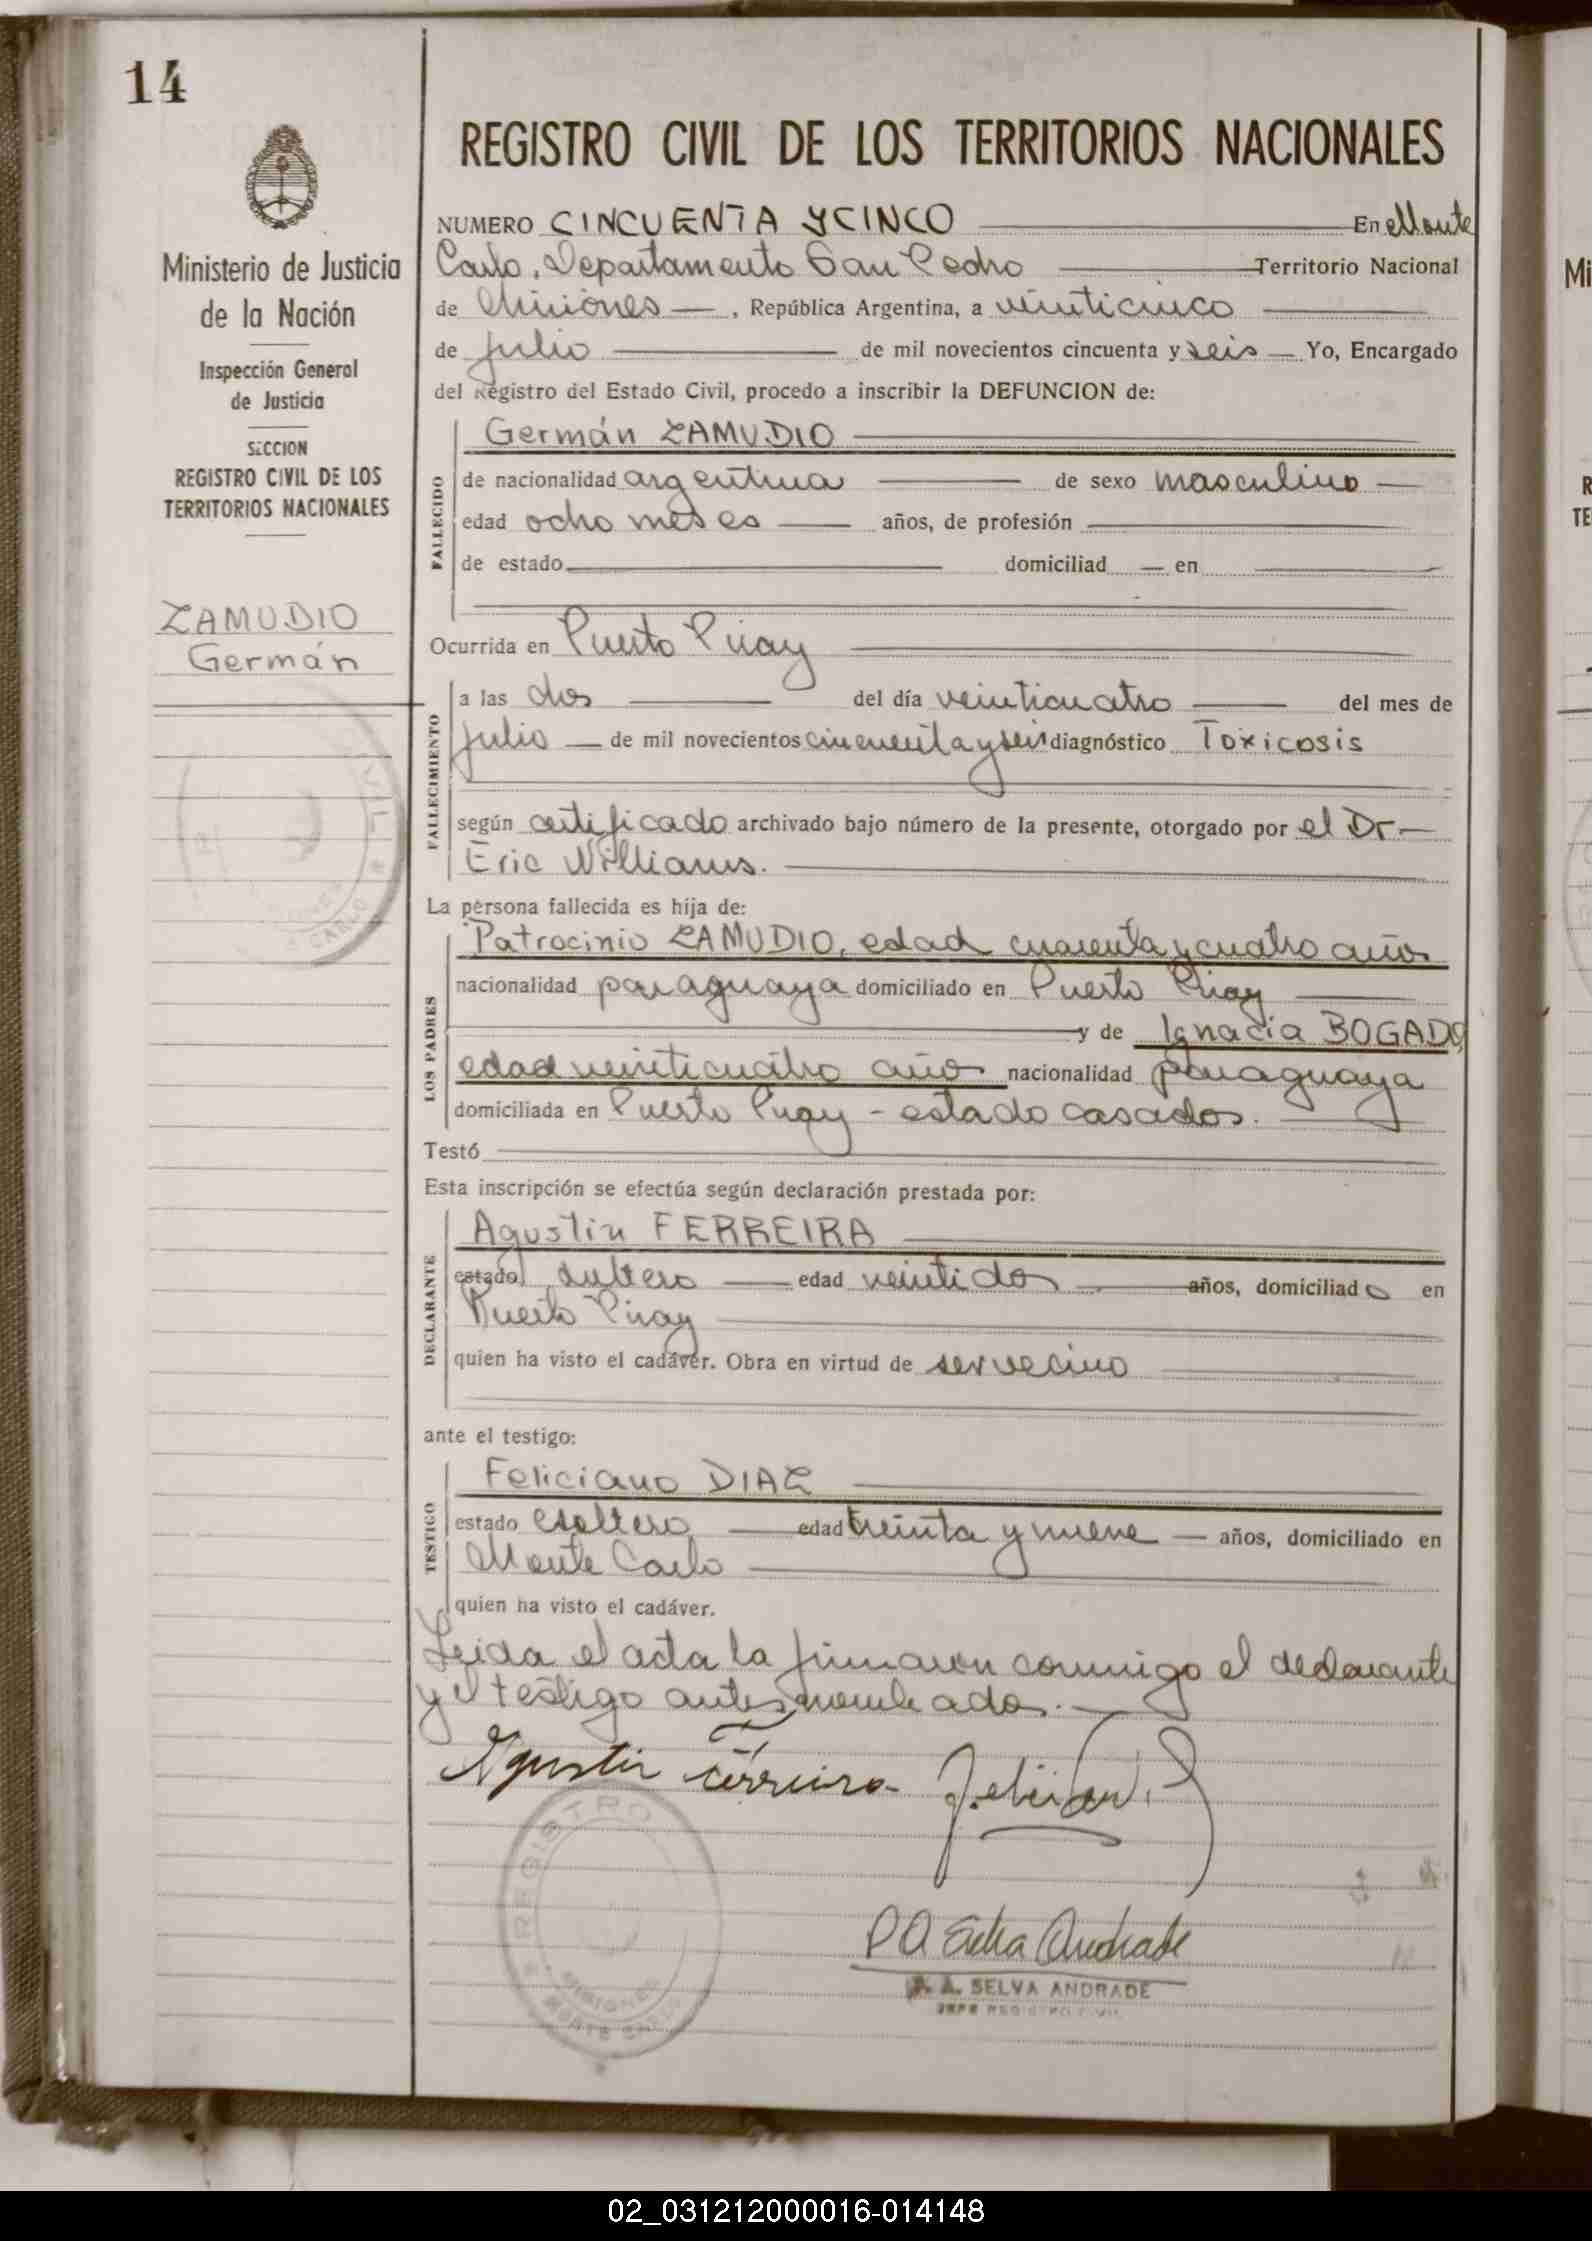 14
Ministerio de Justicia
de la Nación
Inspección General
de Justicia
SECCION
REGISTRO CIVIL DE LOS
TERRITORIOS NACIONALES
ZAMUDIO
Germán
REGISTRO CIVIL DE LOS TERRITORIOS NACIONALES
NUMERO CINCUENTA Y CINCO En Monte
Carlo, Departamento San Pedro Territorio Nacional
de Misiones, República Argentina, a veinticinco
de julio de mil novecientos cincuenta y seis Yo, Encargado
del Registro del Estado Civil, procedo a inscribir la DEFUNCION de:
FALLECIDO
Germán ZAMUDIO
de nacionalidad argentina de sexo masculino
edad ocho meses años, de profesión
de estado domiciliad en
Ocurrida en Puerto Piray
FALLECIMIENTO
a las dos del día veinticuatro del mes de
julio de mil novecientos cincuenta y seis diagnóstico Toxicosis
según certificado archivado bajo número de la presente, otorgado por el Dr
Eric Williams.
La persona fallecida es hija de:
LOS PADRES
Patrocinio ZAMUDIO, edad cuarenta y cuatro años
nacionalidad paraguaya domiciliado en Puerto Piray
y de Ignacia BOGADO,
edad veinticuatro años nacionalidad paraguaya
domiciliada en Puerto Piray - estado casados.
Testó
Esta inscripción se efectúa según declaración prestada por:
DECLARANTE
Agustin FERREIRA
estado soltero edad veintidos años, domiciliado en
Puerto Piray
quien ha visto el cadáver. Obra en virtud de ser vecino
ante el testigo:
TESTIGO
Feliciano DIAZ
estado soltero edad treinta y nueve años, domiciliado en
Monte Carlo
quien ha visto el cadáver.
Leida el acta la firmaron conmigo el declarante
y el testigo antes nombrados.
Agustin Ferreira
REGISTRO
MISIONES
MONTE CARLO
P A Selva Andrade
P. A. SELVA ANDRADE
JEFE REGISTRO CIVIL
02_031212000016-014148